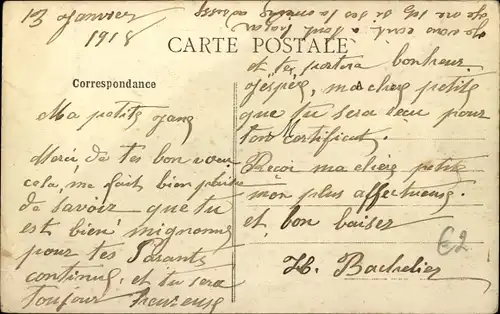 13 Janvier
1918
CARTE POSTALE
Correspondance
Ma petite
Merci de tes bon voeu
cela, me fait bien plaisir
de savoir que tu
est bien mignonne
pour tes Parants
continue et tu sera
toujour heureuse
et tes portera bonheur.
J'espère, ma chere petite
que tu sera recu pour
ton certificat.
Reçoi ma chère petite
mon plus affectueux.
et bon baiser
H. Bachelier
€2